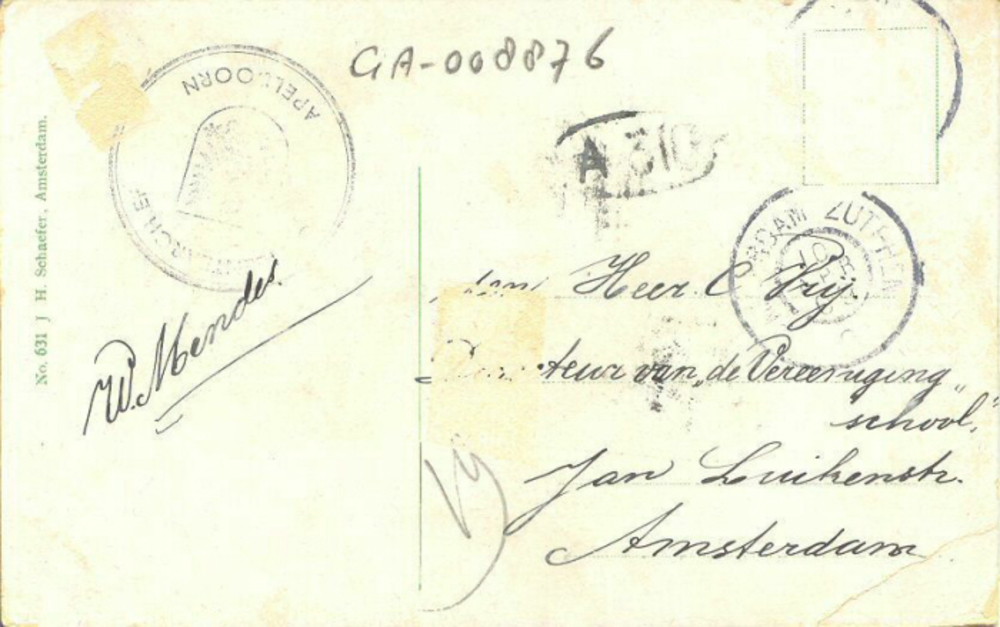 GA-008876
APELDOORN
No. 631 J. H. Schaefer, Amsterdam.
W. Mendes.
A 310
ZUTPHEN
Heer C Vrij.
van „de Vereeniging"
school.
Jan Luikenstr.
Amsterdam